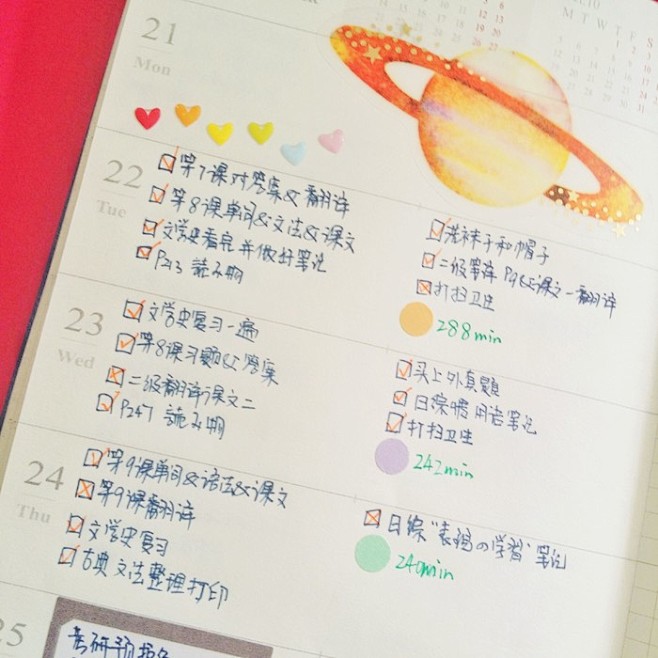 21
Mon
M T W T F S
22
Tue
第7课对答案&翻译
第8课单词&文法&课文
文学史看完并做好笔记
P213 読み期
洗袜子和帽子
二级笔译 P9&课文一翻译
打扫卫生
288min
23
Wed
文学史复习一遍
第8课习题&答案
二级翻译课文二
P247 読み期
头上外真题
日综 用语笔记
打扫卫生
242min
24
Thu
第9课单词&语法&课文
第9课翻译
文学史复习
古典文法整理打印
日综"表现の学習"笔记
240min
25
考研预报名